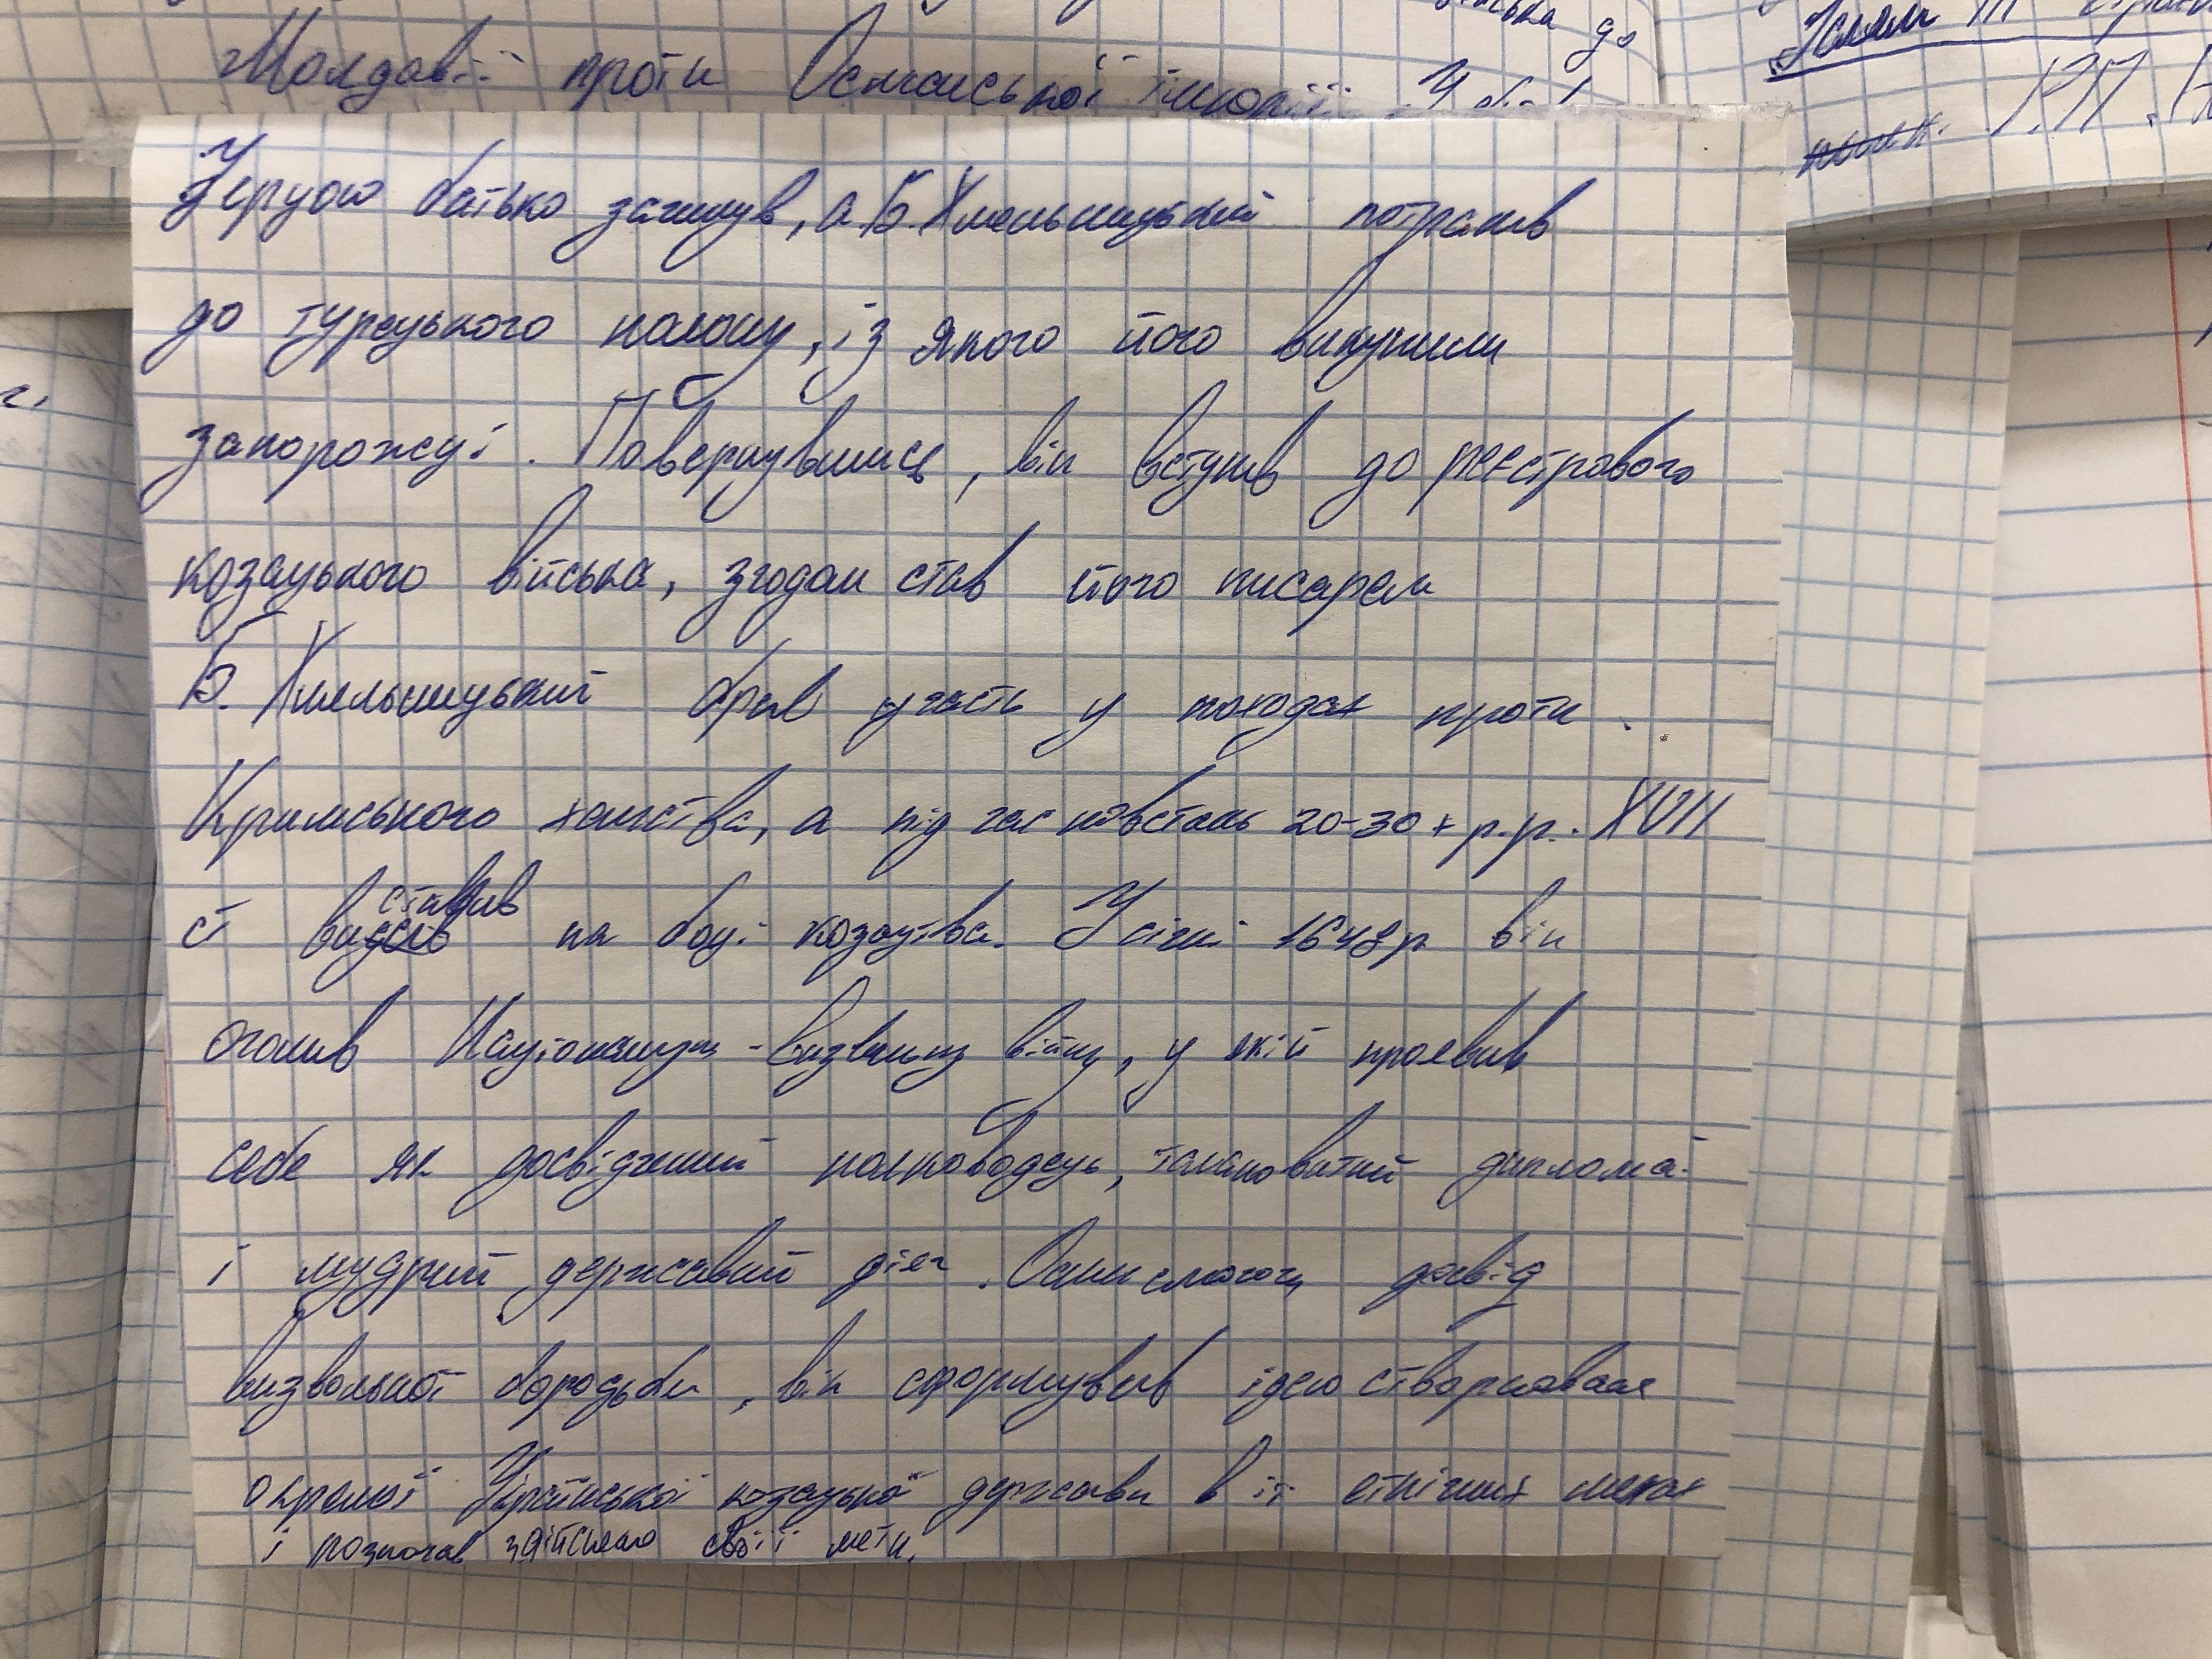 Молдавії проти Османської імперії. У
до
Церуою батько загинув, а Б. Хмельницький потрапив
до турецького полону, із якого його викупили
запорожці. Повернувшись, він вступив до реєстрового
козацького війська, згодом став його писарем
Б. Хмельницький брав участь у походах проти
Кримського ханства, а під час повстань 20-30х р.р. XVII
ст виставив на боці козацтва. У січні 1648р він
очолив Національну-визвольну війну, у якій проявив
себе як досвідчений полководець, талановитий дипломат
і мудрий державний діяч. Осмислюючи досвід
визвольної боротьби, він сформував ідею створювання
окремої Української козацької держави в її етнічних межах
і розпочав здійснено своїїї мети.